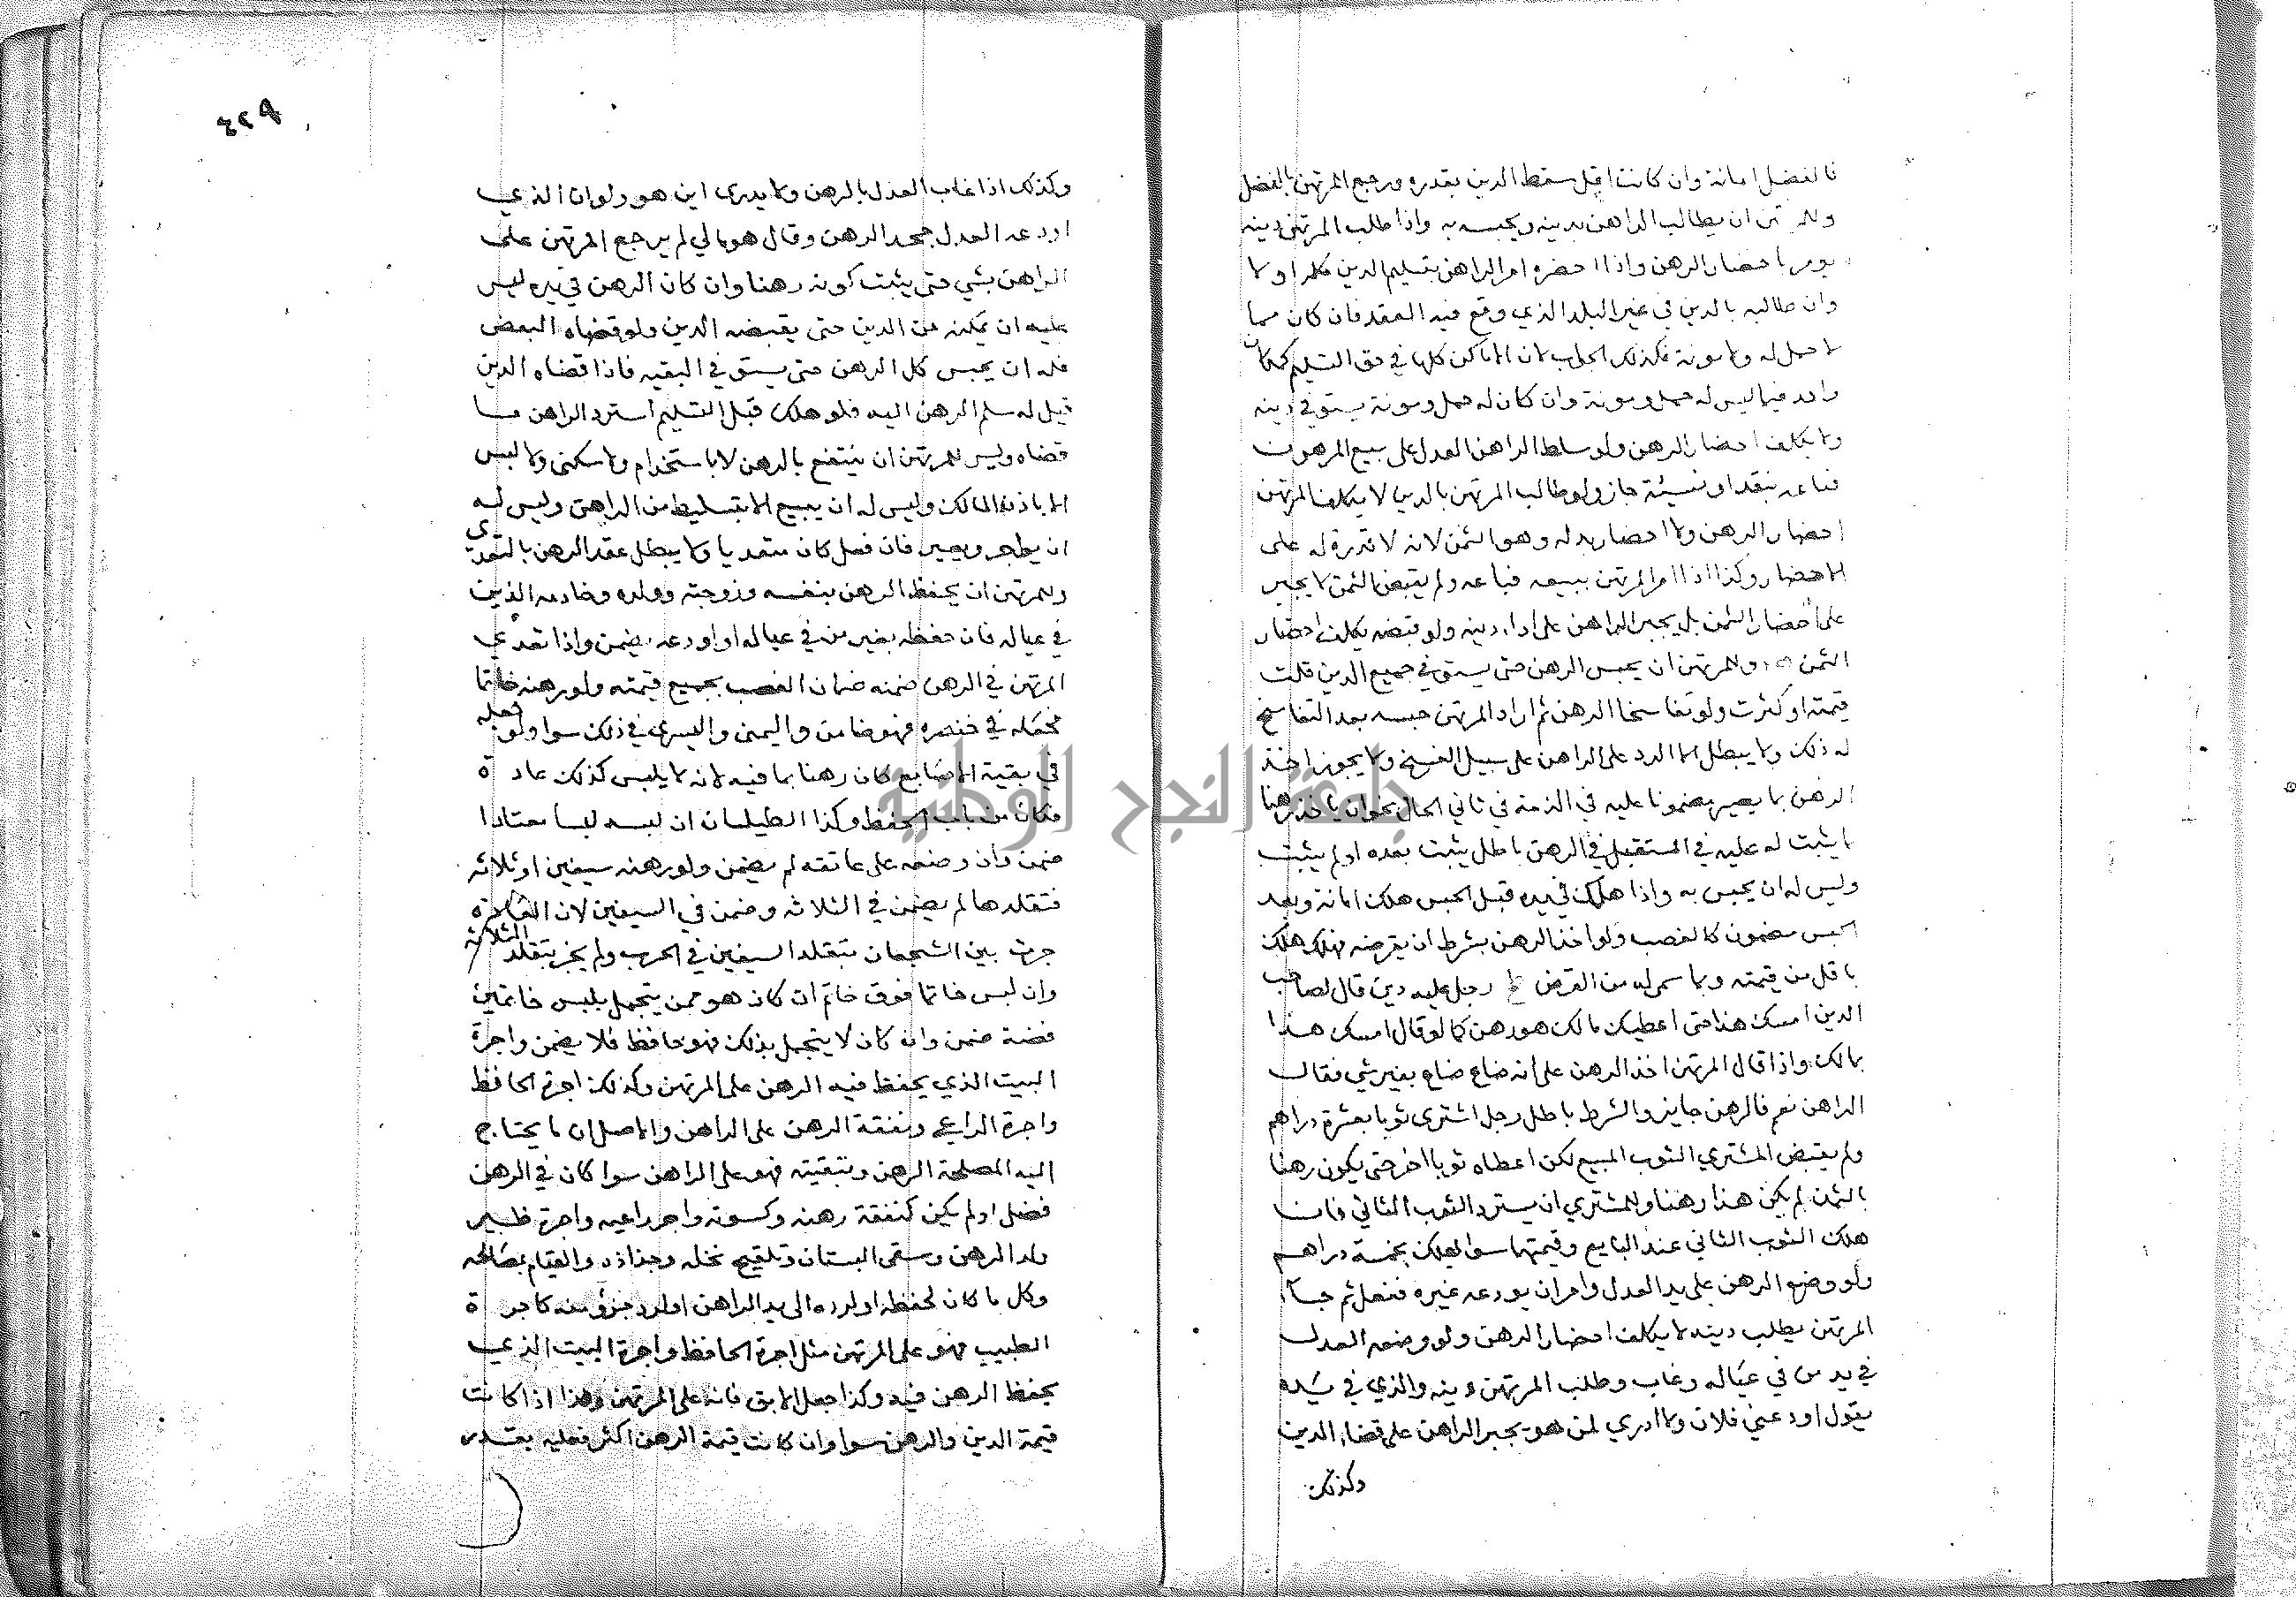 فالفضل امانة وان كانت اقل سقط الدين بقدره ورجع المرتهن بالفضل
وللمرتهن ان يطالب الراهن بدينه ويحبسه به واذا طلب المرتهن دينه
يومر باحضار الرهن واذا احضره امر الراهن بتسليم الدين كله اولا
وان طالبه بالدين في غير البلد الذي وقع فيه العقد فان كان مما
لا حمل له ولا مونة فكذلك الجواب لان الاماكن كلها في حق التسليم كمكان
واحد فيما ليس له حمل ومونة وان كان له حمل ومونة يستوفي دينه
ولا يكلف احضار الرهن ولو سلط الراهن العدل على بيع المرهون
فباعه بنقد او نسيئة جاز ولو طالب المرتهن بالدين لا يكلف المرتهن
احضار الرهن ولا احضار بدله وهو الثمن لانه لا قدرة له على
الاحضار وكذا اذا امر المرتهن ببيعه فباعه ولم يقبض الثمن لا يجبر
على احضار الثمن بل يجبر الراهن على اداء دينه ولو قبضه يكلف احضار
الثمن وللمرتهن ان يحبس الرهن حتى يستوفي جميع الدين قلت
قيمته او كثرت ولو تفاسخا الرهن ثم اراد المرتهن حبسه بعد التفاسخ
له ذلك ولا يبطل الا الرد على الراهن على سبيل الفسخ ولا يجوز اخذ
الرهن بما يصير مضمونا عليه في الذمة في ثاني الحال نحو ان ياخذ رهنا
بما يثبت له عليه في المستقبل فالرهن باطل يثبت بعده او لم يثبت
وليس له ان يحبس به واذا هلك في يده قبل الحبس هلك امانة وبعد
الحبس مضمون كالغصب ولو اخذ الرهن بشرط ان يقرضه فهلك هلك
باقل من قيمته وبما سمى له من القرض رجل عليه دين قال لصاحب
الدين امسك هذا حتى اعطيك مالك هو رهن كما لو قال امسك هذا
بمالك واذا قال المرتهن اخذ الرهن على انه ضاع ضاع بغير شي فقال
الراهن نعم فالرهن جايز والشرط باطل رجل اشترى ثوبا بعشرة دراهم
ولم يقبض المشتري الثوب المبيع لكن اعطاه ثوبا اخر حتى يكون رهنا
بالثمن لم يكن هذا رهنا وللمشتري ان يسترد الثوب الثاني فان
هلك الثوب الثاني عند البايع وقيمتهما سوا يهلك بخمسة دراهم
ولو وضع الرهن على يد العدل وامر ان يودعه غيره ففعل ثم جاء
المرتهن يطلب دينه لا يكلف احضار الرهن ولو وضعه العدل
في يد من في عياله وغاب وطلب المرتهن دينه والذي في يده
يقول اودعني فلان ولا ادري لمن هو يجبر الراهن على قضاء الدين
وكذلك
٤٢٩
وكذلك اذا غاب العدل بالرهن ولا يدرى اين هو ولو ان الذي
اودعه العدل جحد الرهن وقال هو مالي لم يرجع المرتهن على
الراهن بشي حتى يثبت كونه رهنا وان كان الرهن في يده ليس
عليه ان يمكنه من الدين حتى يقبضه الدين ولو قضاه البعض
فله ان يحبس كل الرهن حتى يستوفي البقيه فاذا قضاه الدين
قيل له سلم الرهن اليه فلو هلك قبل التسليم استرد الراهن ما
قضاه وليس للمرتهن ان ينتفع بالرهن لا باستخدام ولا سكنى ولا لبس
الا باذن المالك وليس له ان يبيع الا بتسليط من الراهن وليس له
ان يواجر ويعير فان فعل كان متعديا ولا يبطل عقد الرهن بالتعدي
وللمرتهن ان يحفظ الرهن بنفسه وزوجته وولده وخادمه الذين
في عياله فان حفظه بغير من في عياله او اودعه يضمن واذا تعدي
المرتهن في الرهن ضمنه ضمان الغصب بجميع قيمته ولو رهنه خاتما
فجعله في خنصره فهو ضامن واليمنى واليسرى في ذلك سوا ولو جعله
في بقية الاصابع كان رهنا بما فيه لانه لا يلبس كذلك عادة
فكان من باب الحفظ وكذا الطيلسان ان لبسه لبسا معتادا
ضمن وان وضعه على عاتقه لم يضمن ولو رهنه سيفين او ثلاثه
فتقلدها لم يضمن في الثلاثه وضمن في السيفين لان العادة
جرت بين الشجعان بتقلد السيفين في الحرب ولم يجر بتقلد الثلاثه
وان لبس خاتما فوق خاتم ان كان هو ممن يتجمل بلبس خاتمين
فضة ضمن وان كان لا يتجمل بذلك فهو حافظ فلا يضمن واجرة
البيت الذي يحفظ فيه الرهن على المرتهن وكذلك اجرة الحافظ
واجرة الراعي ونفقة الرهن على الراهن والاصل ان ما يحتاج
اليه لمصلحة الرهن وتبقيته فهو على الراهن سوا كان في الرهن
فضل او لم يكن كنفقة رهنه وكسوته واجر راعيه واجرة ظير
ولد الرهن وسقى البستان وتلقيح نخله وجذاذه والقيام بمصالحه
وكل ما كان لحفظه او لرده الى يد الراهن او لرد جزؤ منه كاجرة
الطبيب فهو على المرتهن مثل اجرة الحافظ واجرة البيت الذي
يحفظ الرهن فيه وكذا جعل الابق فانه على المرتهن وهذا اذا كانت
قيمة الدين والرهن سوا وان كانت قيمة الرهن اكثر فعليه بقدر
جامعة النجاح الوطنية